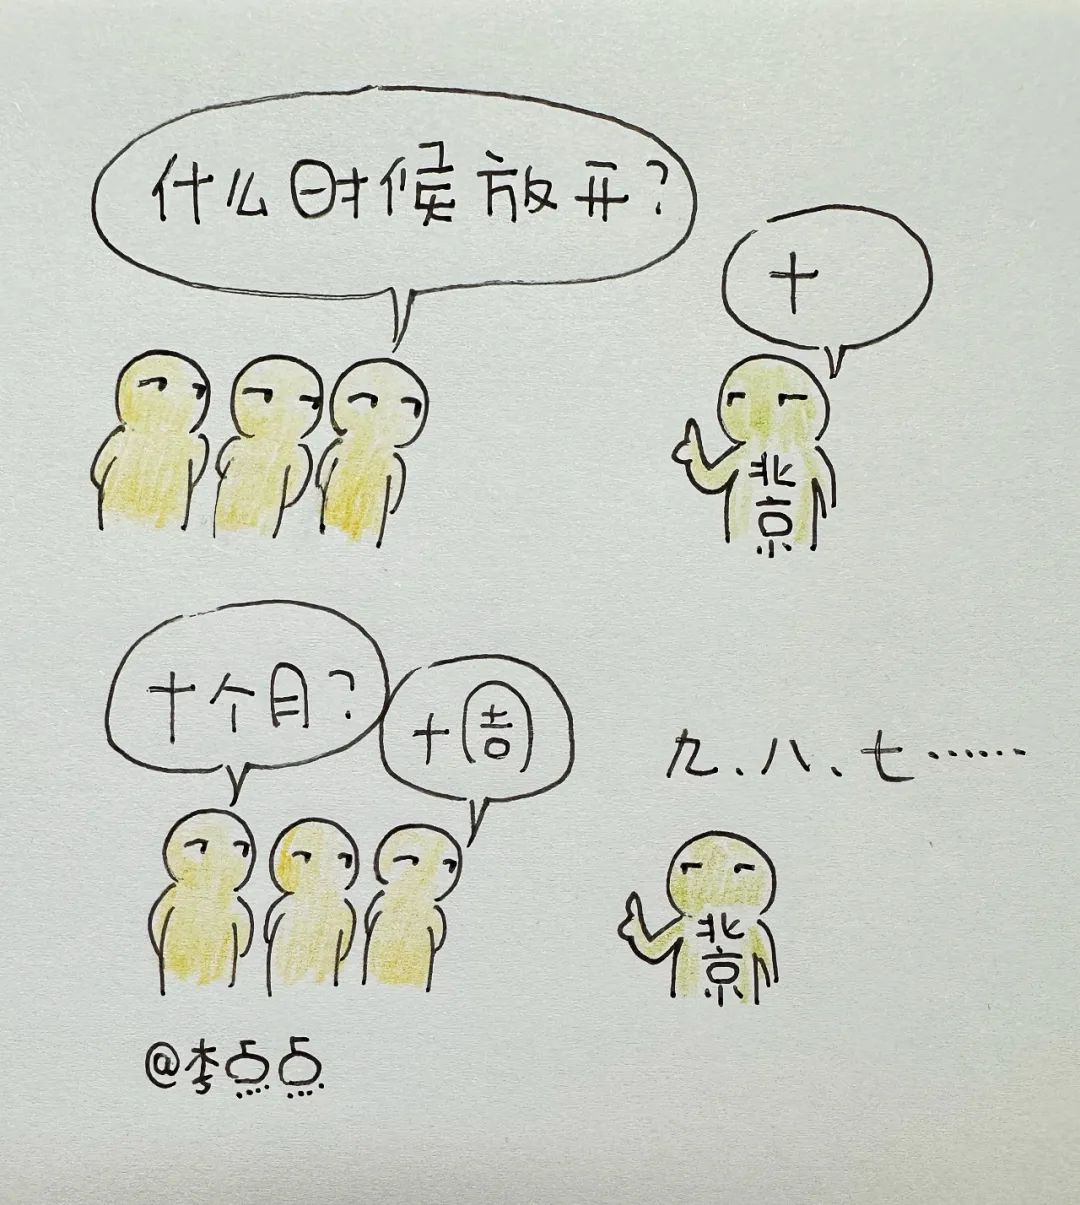 什么时候放开？
十
北京
十个月？
十周
九、八、七……
北京
@李点点